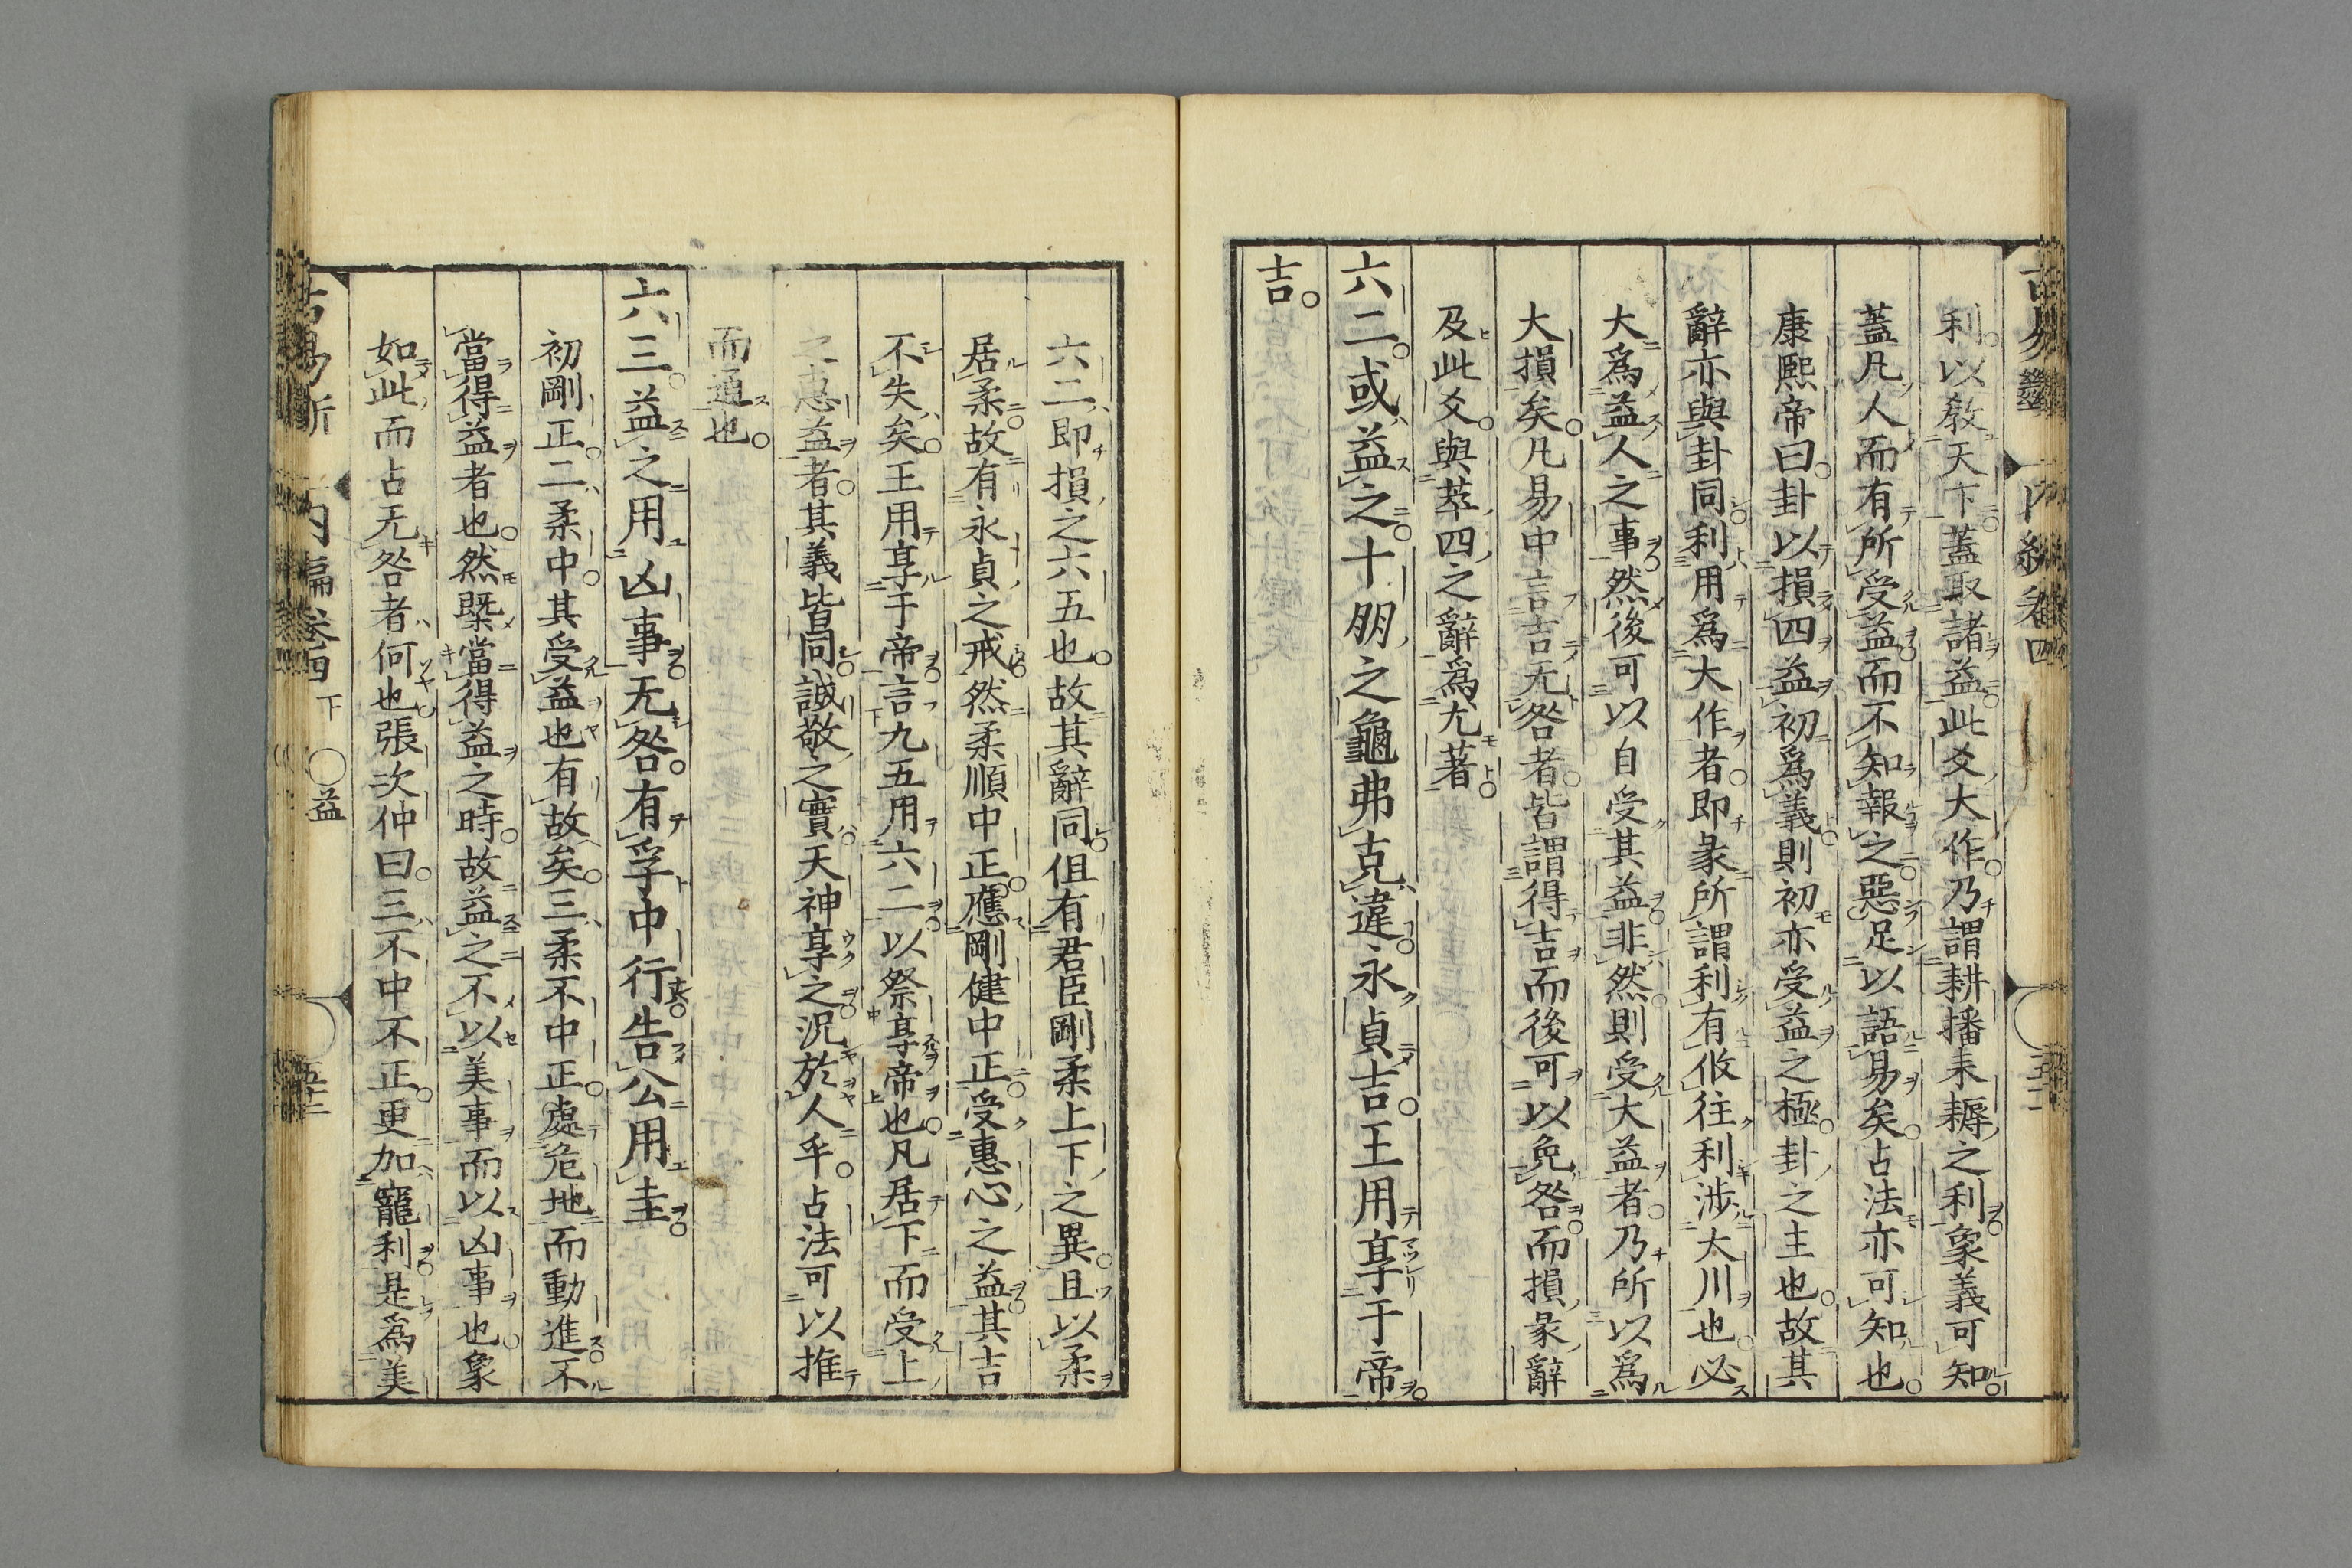 利以敎天下蓋取諸益此爻大作乃謂耕播耒耨之利象義可知
蓋凡人而有所受益而不知報之惡足以語易矣占法亦可知也
康熙帝曰卦以損四益初爲義則初亦受益之極卦之主也故其
辭亦與卦同利用爲大作者即彖所謂利有攸往利涉大川也必
大爲益人之事然後可以自受其益非然則受大益者乃所以爲
大損矣凡易中言吉无咎者皆謂得吉而後可以免咎而損彖辭
及此爻與萃四之辭爲尤著
六二或益之十朋之龜弗克違永貞吉王用享于帝
吉
六二即損之六五也故其辭同但有君臣剛柔上下之異且以柔
居柔故有永貞之戒然柔順中正應剛健中正受惠心之益其吉
不失矣王用享于帝言九五用六二以祭享帝也凡居下而受上
之惠益者其義皆同誠敬之實天神享之況於人乎占法可以推
而通也
六三益之用凶事无咎有孚中行告公用圭
初剛正二柔中其受益也有故矣三柔不中正處危地而動進不
當得益者也然旣當得益之時故益之不以美事而以凶事也象
如此而占无咎者何也張次仲曰三不中不正更加寵利是爲美
内編卷四 下 ○益